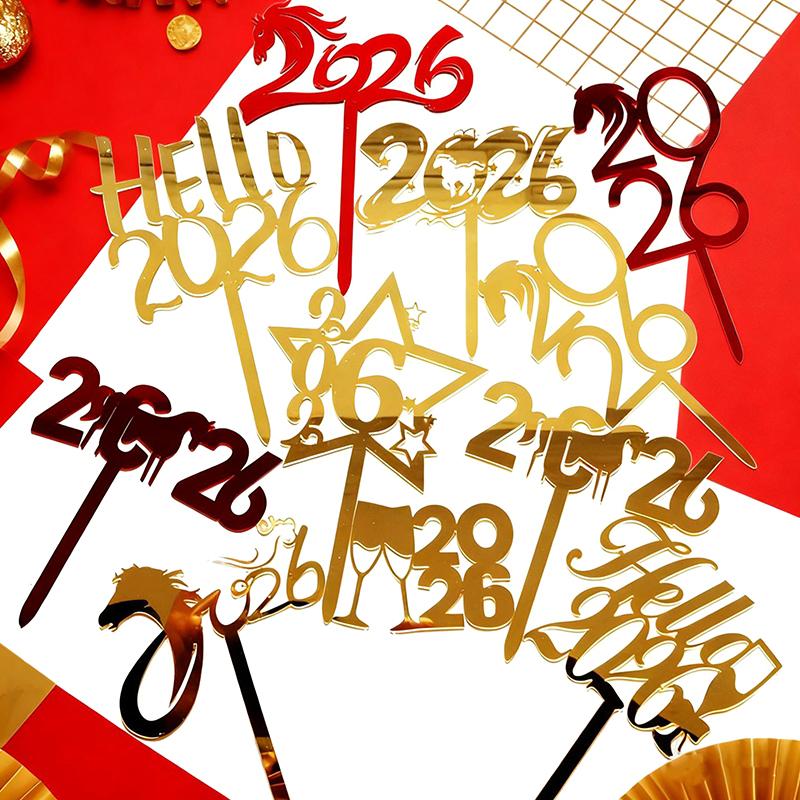 2026
HELLO
2026
2026
20
26
20
26
2026
2026
2026
20
26
2026
Hello
2026